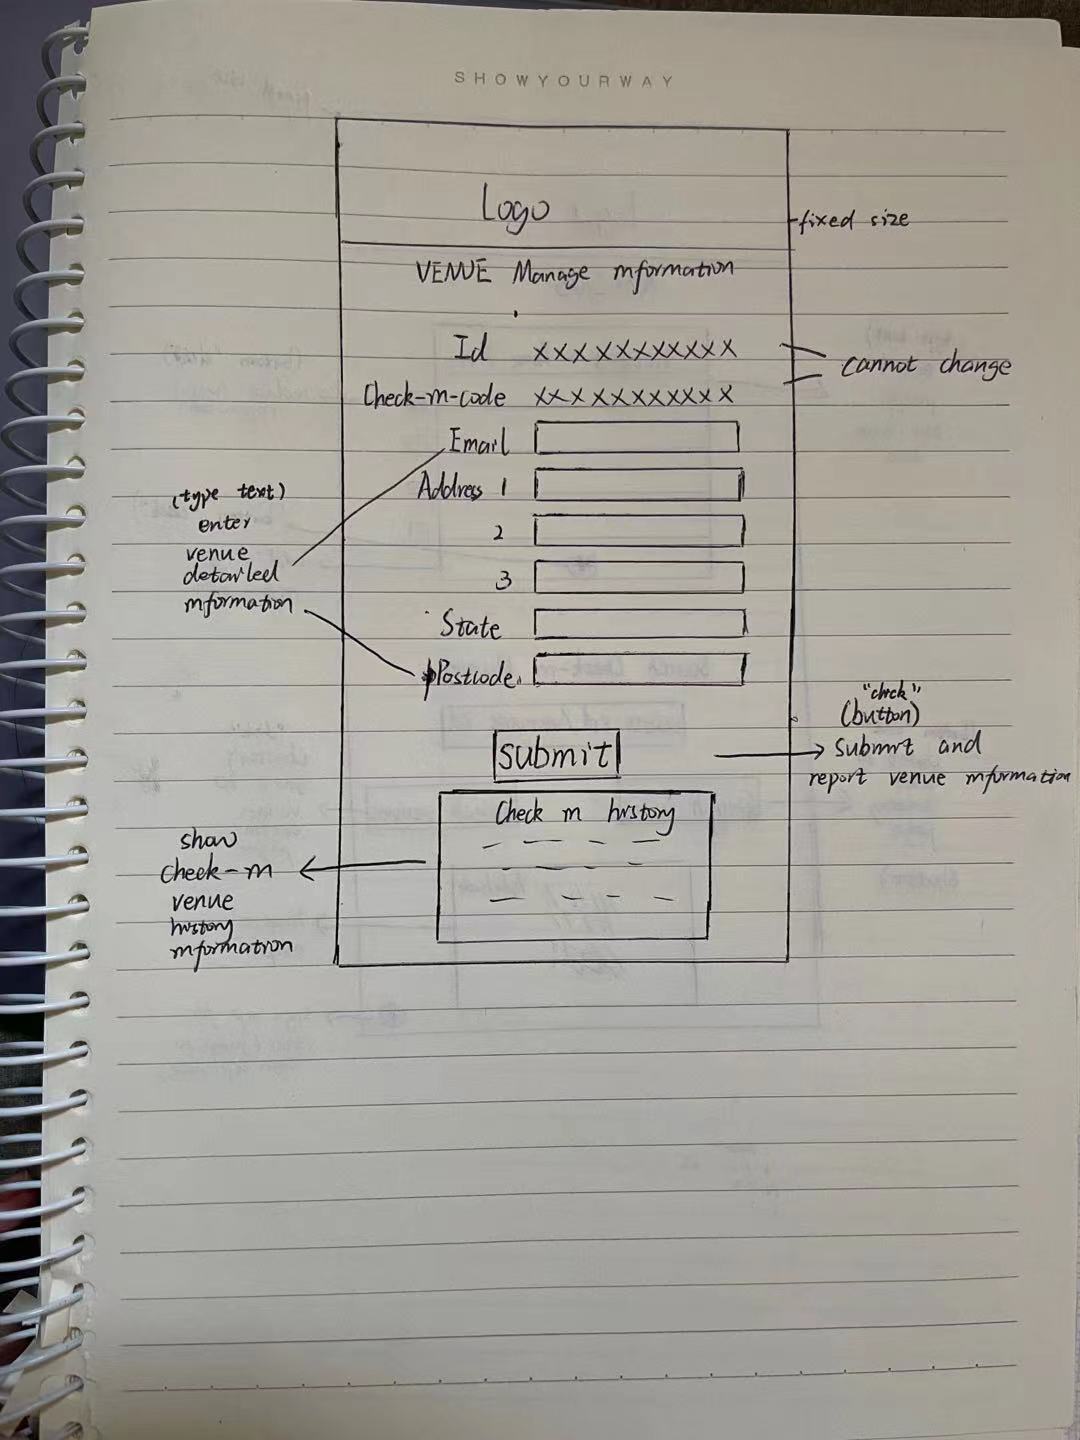 SHOWYOURWAY
Logo
fixed size
VENUE Manage information
Id XXXXXXXXXXX
cannot change
Check-in-code XXXXXXXXXXX
Email
Address 1
2
3
State
Postcode.
(type text)
enter
venue
detailed
information
submit
"check"
(button)
submit and
report venue information
Check in history
show
check-in
venue
history
information